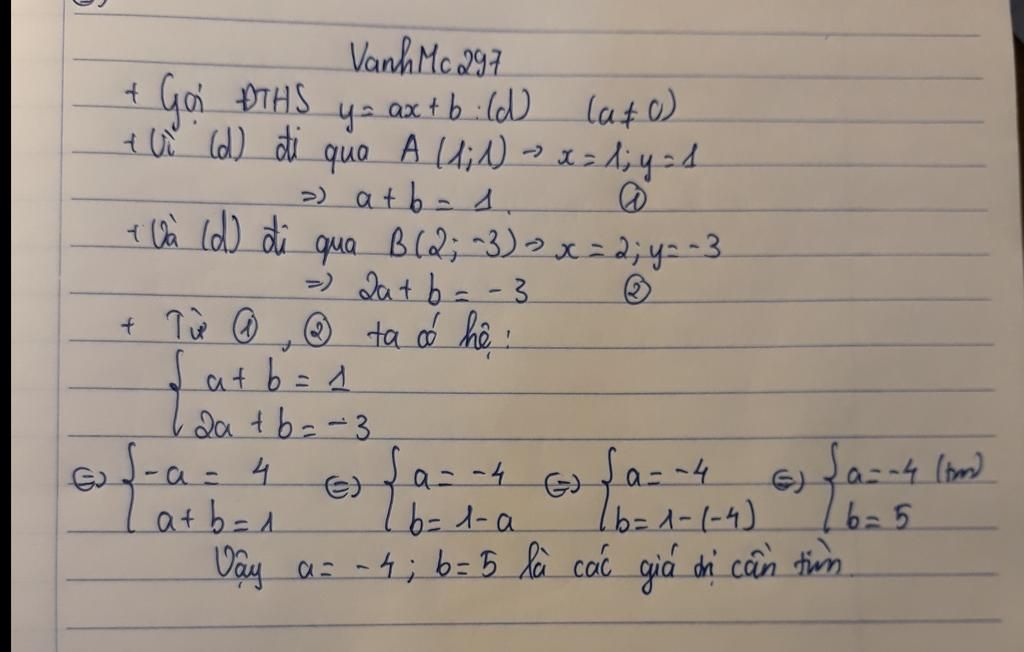 VanhMc297
+ Gọi ĐTHS y = ax + b : (d) (a ≠ 0)
+ Vì (d) đi qua A (1; 1) → x = 1; y = 1
=> a + b = 1. ①
+ Và (d) đi qua B (2; -3) → x = 2; y = -3
=> 2a + b = -3 ②
+ Từ ①, ② ta có hệ:
{ a + b = 1
2a + b = -3
<=> { -a = 4 <=> { a = -4 <=> { a = -4 <=> { a = -4 (tm)
a + b = 1 b = 1 - a b = 1 - (-4) b = 5
Vậy a = -4; b = 5 là các giá trị cần tìm